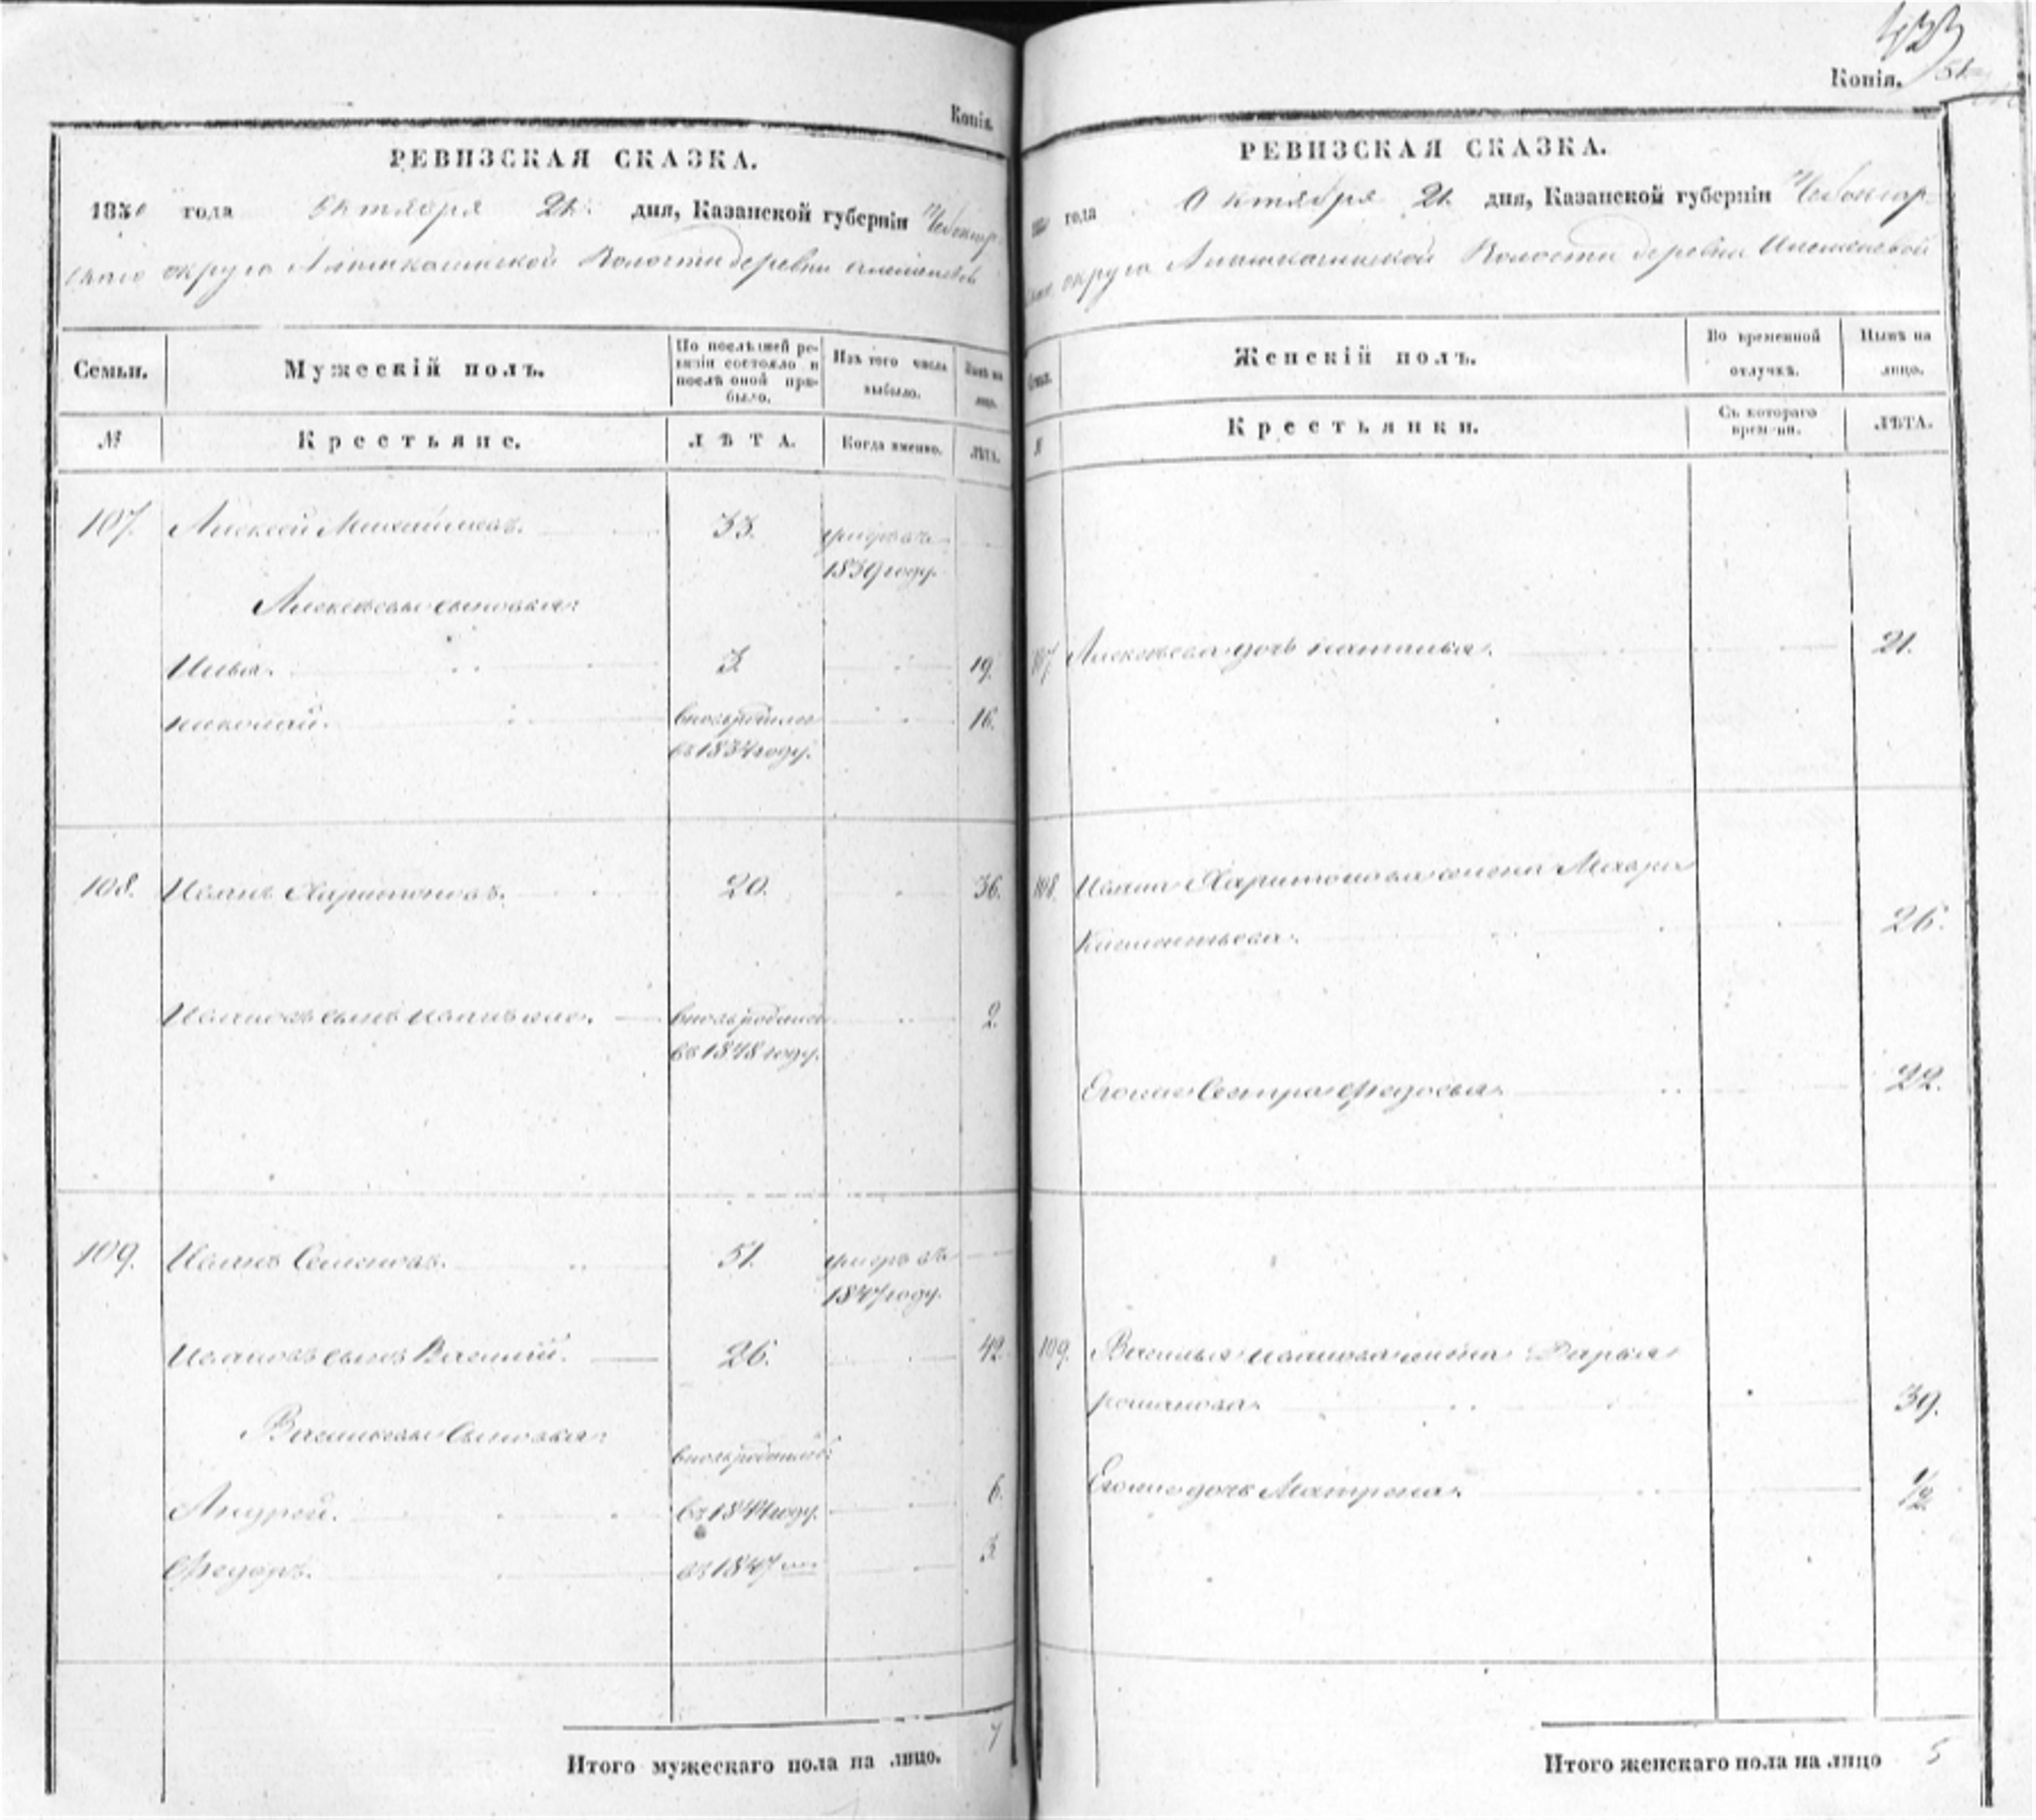 Копія.
РЕВИЗСКАЯ СКАЗКА.
1850 года Октября 21. дня, Казанской губерніи Чебоксар-
скаго округа Алымкасинской Волости деревни
Семьи.
Мужескій полъ.
По послѣдней ре-
визіи состояло и
послѣ оной при-
было.
Изъ того числа
выбыло.
Нынѣ на
лицо.
№
Крестьяне.
ЛѢТА.
Когда именно.
ЛѢТА.
107. Алексей Михайловъ. 33. умеръ въ
1839 году.
Алексеевы сыновья:
Илья. 3. 19.
николай. вновь рожденъ 16.
въ 1834 году.
108. Иванъ Харитоновъ. 20. 36.
Ивановъ сынъ вновь рожденъ 2.
въ 1848 году.
109. Иванъ Семеновъ. 51. умеръ въ
1847 году.
Ивановъ сынъ Василий. 26. 42.
Васильевы Сыновья: вновь рожденны:
Андрей. въ 1844 году. 6.
Федоръ. въ 1847 3.
Итого мужескаго пола на лицо. 7
433
Копія.
РЕВИЗСКАЯ СКАЗКА.
года Октября 21. дня, Казанской губерніи Чебоксар-
скаго округа Алымкасинской Волости деревни
Семьи.
Женскій полъ.
Во временной
отлучкѣ.
Нынѣ на
лицо.
№
Крестьянки.
Съ котораго
времени.
ЛѢТА.
107. Алексеева дочь наталья. 21.
108. Ивана Харитонова жена
26.
Егоже Сестра Федосья. 22.
109. Василья иванова жена Дарья
романова. 39.
Егоже дочь Матрена. 1/2.
Итого женскаго пола на лицо 5